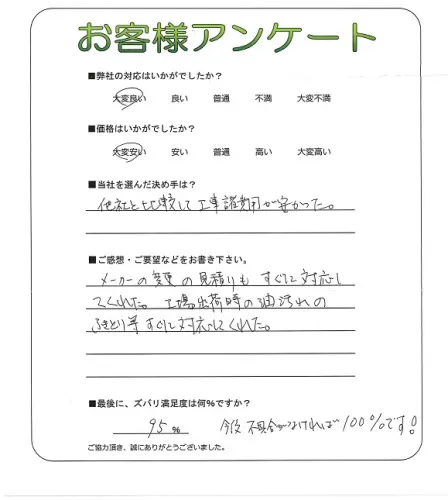 お客様アンケート
■弊社の対応はいかがでしたか？
大変良い 良い 普通 不満 大変不満
■価格はいかがでしたか？
大変安い 安い 普通 高い 大変高い
■当社を選んだ決め手は？
他社と比較して工事諸費用が安かった。
■ご感想・ご要望などをお書き下さい。
メーカーの変更の見積りもすぐに対応し
てくれた。工場出荷時の油汚れの
ふきとり等すぐに対応してくれた。
■最後に、ズバリ満足度は何％ですか？
95 % 今後不具合がなければ100%です！
ご協力頂き、誠にありがとうございました。